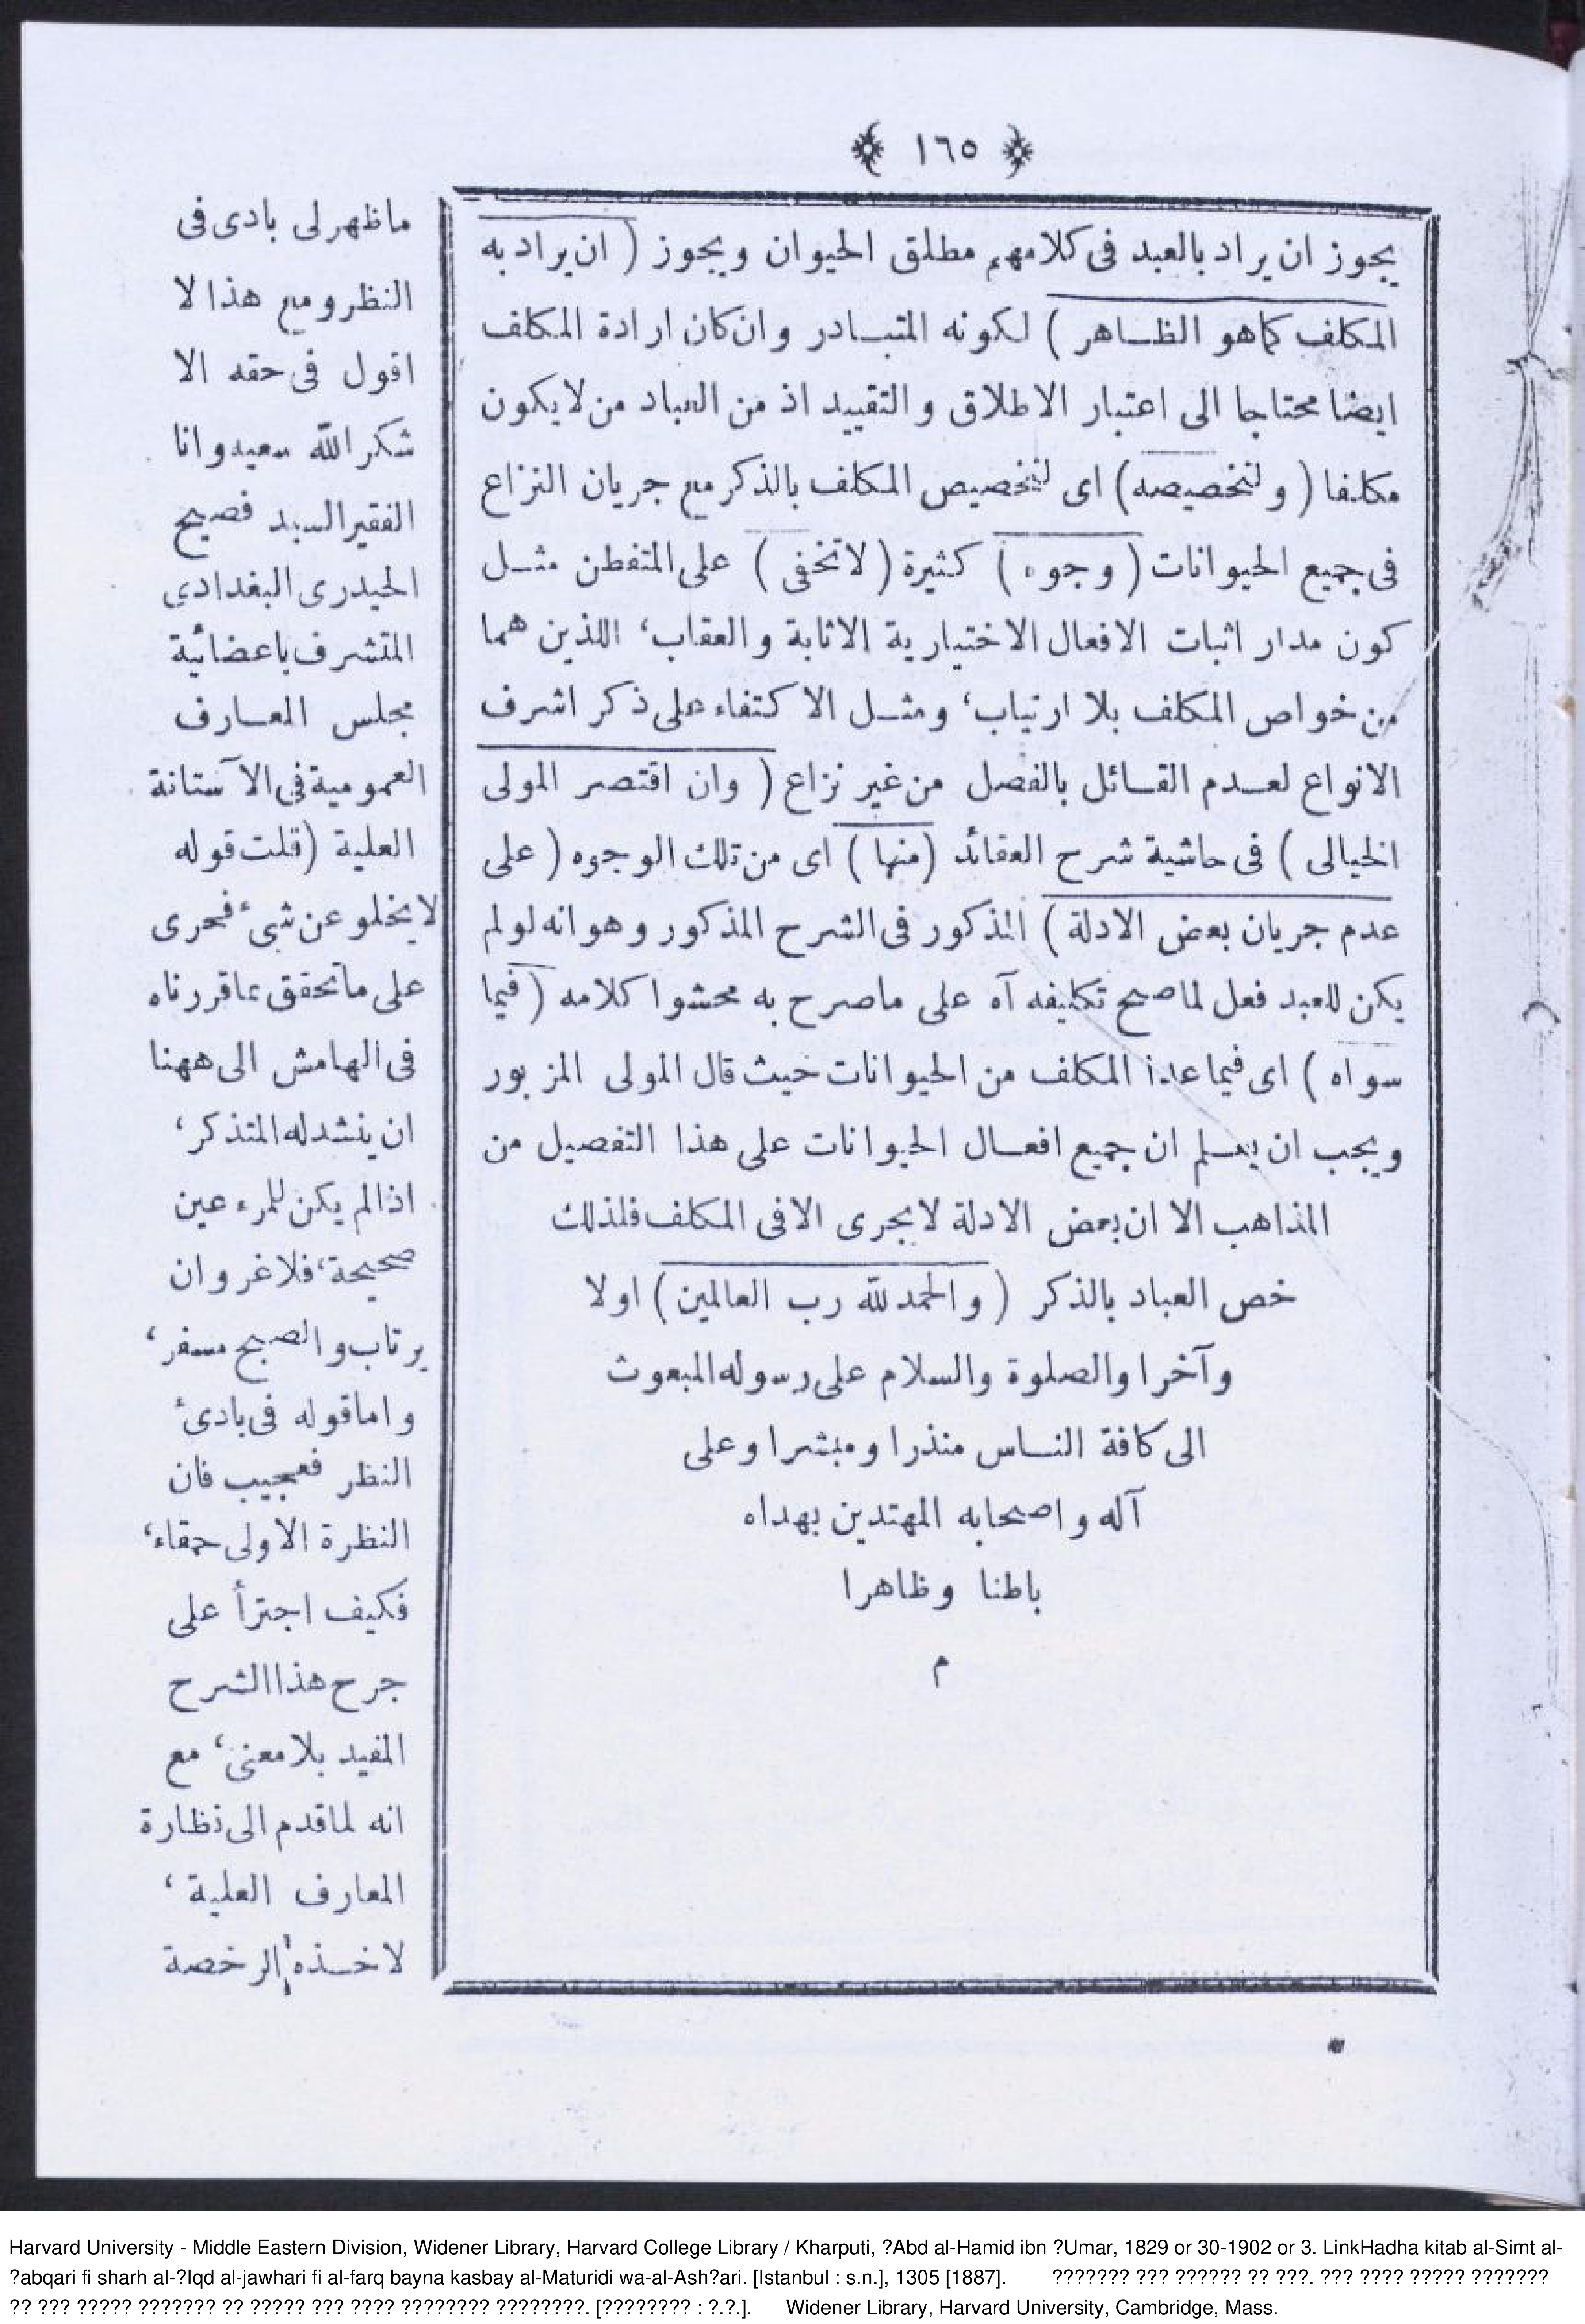 ﴿ ١٦٥ ﴾
يجوز ان يراد بالعبد فى كلامهم مطلق الحيوان ويجوز ( ان يراد به
المكلف كما هو الظاهر ) لكونه المتبادر وان كان ارادة المكلف
ايضا محتاجا الى اعتبار الاطلاق والتقييد اذ من العباد من لا يكون
مكلفا ( ولتخصيصه ) اى لتخصيص المكلف بالذكر مع جريان النزاع
فى جميع الحيوانات ( وجوه ) كثيرة ( لا تخفى ) على المتفطن مثل
كون مدار اثبات الافعال الاختيارية الاثابة والعقاب، اللذين هما
من خواص المكلف بلا ارتياب، ومثل الاكتفاء على ذكر اشرف
الانواع لعدم القائل بالفصل من غير نزاع ( وان اقتصر المولى
الخيالى ) فى حاشية شرح العقائد ( منها ) اى من تلك الوجوه ( على
عدم جريان بعض الادلة ) المذكور فى الشرح المذكور وهو انه لو لم
يكن للعبد فعل لما صح تكليفه آه على ماصرح به محشوا كلامه ( فيما
سواه ) اى فيما عدا المكلف من الحيوانات حيث قال المولى المزبور
ويجب ان يعلم ان جميع افعال الحيوانات على هذا التفصيل من
المذاهب الا ان بعض الادلة لا يجرى الا فى المكلف فلذلك
خص العباد بالذكر ( والحمد لله رب العالمين ) اولا
وآخرا والصلوة والسلام على رسوله المبعوث
الى كافة الناس منذرا ومبشرا وعلى
آله واصحابه المهتدين بهداه
باطنا وظاهرا
م
ماظهر لى بادى فى
النظر ومع هذا لا
اقول فى حقه الا
شكر الله سعيه وانا
الفقير السيد فصيح
الحيدرى البغدادي
المتشرف باعضائية
مجلس المعارف
العمومية فى الآستانة
العلية ( قلت قوله
لا يخلو عن شئ فحرى
على ماتحقق مماقررناه
فى الهامش الى ههنا
ان ينشد له المتذكر،
اذا لم يكن للمرء عين
صحيحة، فلا غرو ان
يرتاب والصبح مسفر،
واما قوله فى بادئ
النظر فعجيب فان
النظرة الاولى حمقاء،
فكيف اجترأ على
جرح هذا الشرح
المفيد بلا معنى، مع
انه لما قدم الى نظارة
المعارف العلية،
لاخذه الرخصة
Harvard University - Middle Eastern Division, Widener Library, Harvard College Library / Kharputi, ?Abd al-Hamid ibn ?Umar, 1829 or 30-1902 or 3. LinkHadha kitab al-Simt al-
?abqari fi sharh al-?Iqd al-jawhari fi al-farq bayna kasbay al-Maturidi wa-al-Ash?ari. [Istanbul : s.n.], 1305 [1887]. ??????? ??? ?????? ?? ???. ??? ???? ????? ???????
?? ??? ????? ??????? ?? ????? ??? ???? ???????? ????????. [???????? : ?.?.]. Widener Library, Harvard University, Cambridge, Mass.